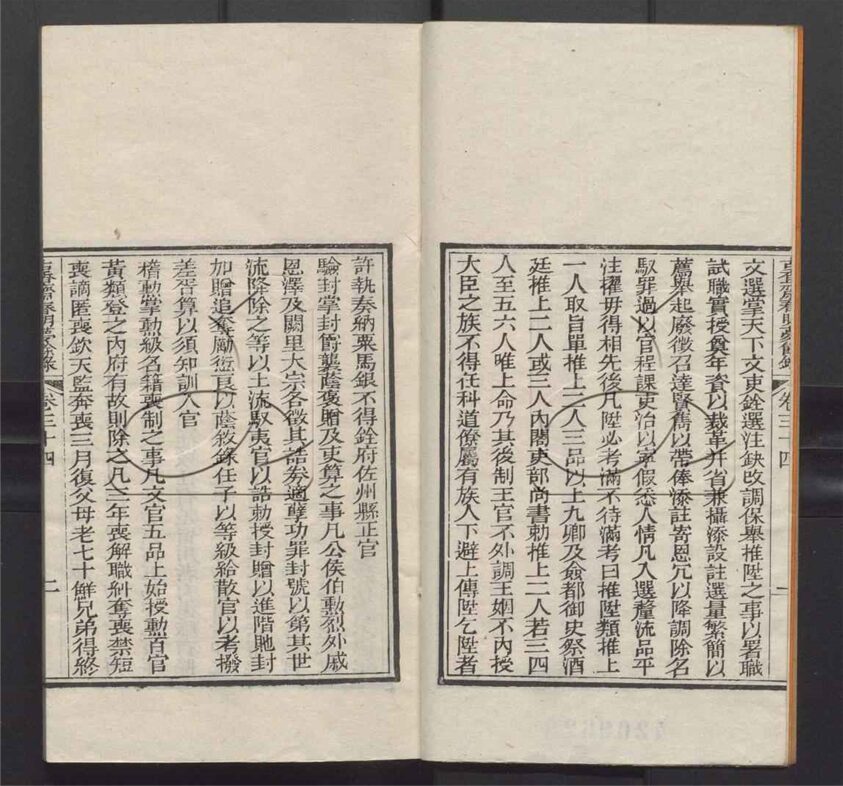 古香齋春明夢餘錄 卷三十四 一
文選掌天下文吏銓選注缺改調保舉推陞之事以署職
試職實授奠年資以裁革并省兼攝添設註選量繁簡以
薦舉起廢徵召達賢雋以帶俸添註寄恩冗以降調除名
馭罪過以官程課吏治以寧假悉人情凡入選釐流品平
注擢毋得相先後凡陞必考滿不待滿考曰推陞類推上
一人取旨單推上二人三品以上九卿及僉都御史祭酒
廷推上二人或三人內閣吏部尚書勅推上二人若三四
人至五六人唯上命乃其後制王官不外調王姻不內授
大臣之族不得任科道僚屬有族人下避上傳陞乞陞者
許執奏納粟馬銀不得銓府佐州縣正官
驗封掌封爵襲蔭褒贈及吏算之事凡公侯伯勳烈外戚
恩澤及闕里大宗各徵其誥券適孽功罪封號以第其世
流降除之等以土流馭夷官以誥勅授封贈以進階貤封
加贈追奪勵衒官以蔭敘錄任子以等級給散官以考撥
差胥算以須知訓入官
稽勳掌勳級名籍喪制之事凡文官五品上始授勳百官
黃類登之內府有故則除之凡三年喪解職糾奪喪禁短
喪謫匿喪欽天監奔喪三月復父母老七十鮮兄弟得終
古香齋春明夢餘錄 卷三十四 二